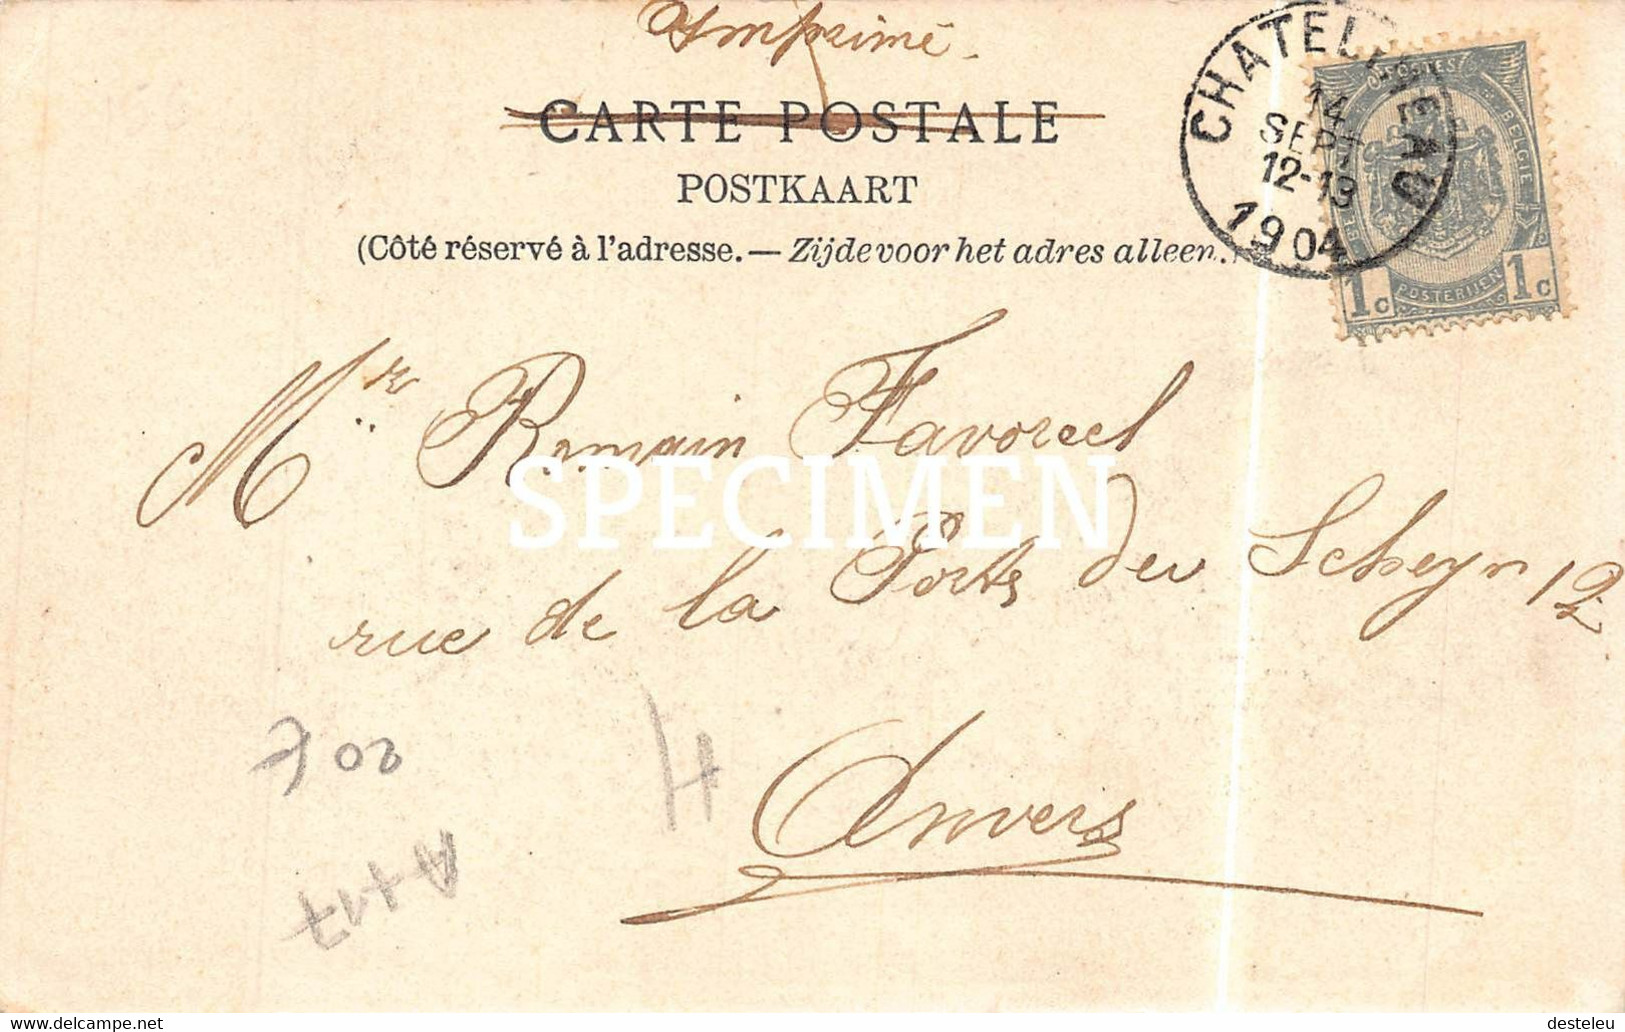 Imprimé
CARTE POSTALE
POSTKAART
(Côté réservé à l'adresse. — Zijde voor het adres alleen.)
CHATELINEAU
14
SEPT
12-13
1904
POSTES
BELGIE
1c POSTERIJEN 1c
Mr Romain Favoreel
SPECIMEN
rue de la Porte du Scheyn 12
Anvers
20 €
H
A+17
delcampe.net
desteleu